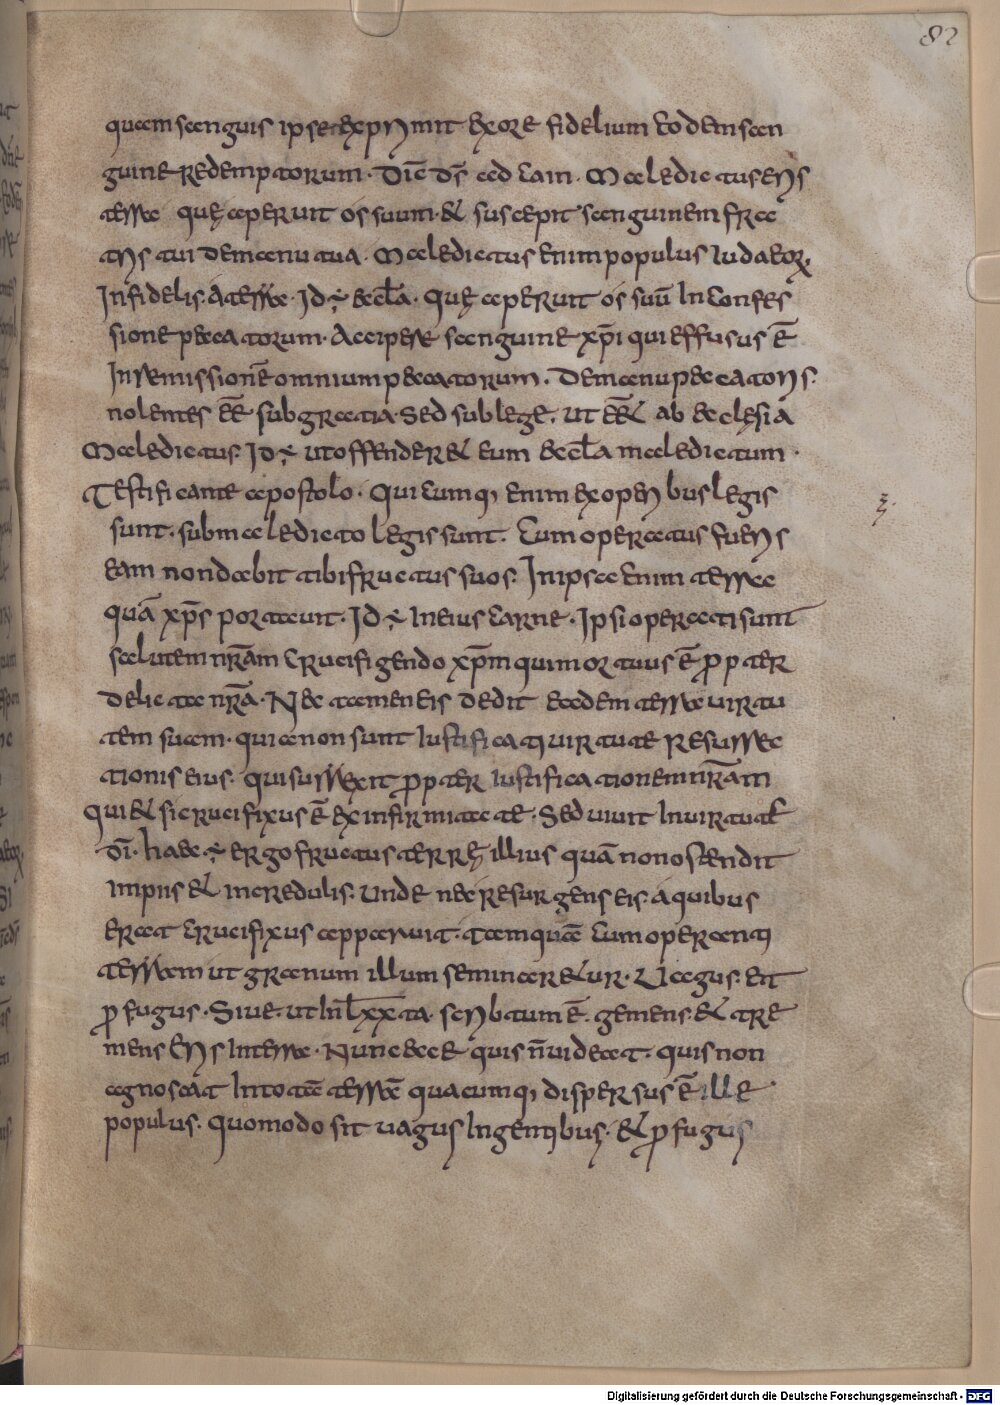 82
quam sanguis ipse exprimit ex ore fidelium eodem san
guine redemptorum. Dic̄ d̄s ad cain. Maledictus eris
terrae quę aperuit os suum. & suscepit sanguinem fra
tris tui de manu tua. Maledictus enim populus iudaeoꝝ
Infidelis. A terrae. Id ÷ aeccl̄a. Quę aperuit os suū In confes
sione peccatorum. Accipere sanguine xp̄i qui effusus ē
In remissionē omnium peccatorum. De manu peccatoris
nolentes eē sub gratia. Sed sub lege. ut eē& ab aeclęsia
Maledictus. Id ÷ ut offender& eum aeccl̄a maledictum.
Testificante apostolo. Quicumq; enim ex operibus legis
sunt. sub maledicto legis sunt. Cum operatus fueris
eam non dabit tibi fructus suos. In ipsa enim terra
quā xp̄s portauit. Id ÷ In eius carne. Ipsi operati sunt
salutem nr̄am crucifigendo xp̄m qui mortuus ē ꝓpter
delicta nr̄a. Nec tamen eis dedit eadem terra uirtu
tem suam. quia non sunt Iustificati uirtute resurrec
tionis eius. qui surrexit ꝓpter Iustificationem nr̄am
Qui & si crucifixus ē ex infirmitate. Sed uiuit In uirtute
dī. haec ÷ ergo fructus terrę illius quā non ostendit
impiis & incredulis. unde nec resurgens eis. a quibus
erat crucifixus apparuit. tamquā cum operanti
terram ut granum illum seminar&ur. Uagus. et
ꝓfugus. Siue. ut In LXX ta. scribtum ē. gemens. & tre
mens eris In terra. Nunc ecce quis n̄ uideat. quis non
agnoscat In tota terrā quacumq; dispersus ē ille
populus. quomodo sit uagus In gentibus. & ꝓfugus
Digitalisierung gefördert durch die Deutsche Forschungsgemeinschaft - DFG